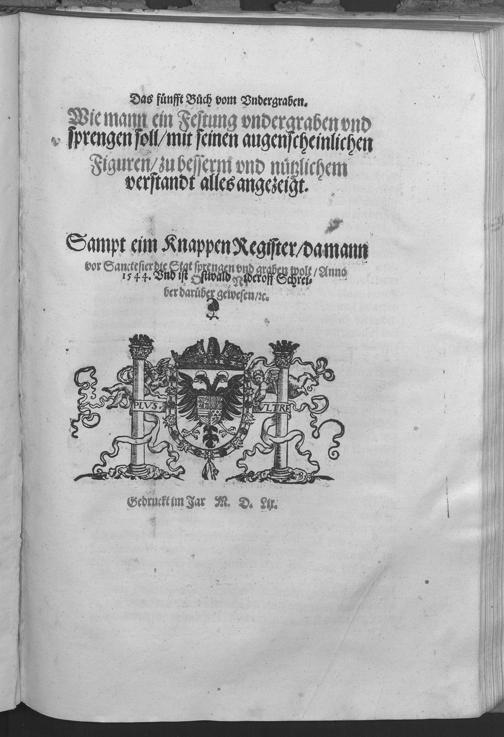 Das fünfft Büch vom Vndergraben.
Wie mann ein Festung vndergraben vnd
sprengen soll/ mit seinen augenscheinlichen
Figuren/ zu besserm vnd nützlichem
verstandt alles angezeigt.
Sampt eim Knappen Register/ da mann
vor Sanctesier die Stat sprengen vnd graben wolt/ Anno
1544. Vnd ist Oswald Nideroff Schrei-
ber darüber gewesen/ ꝛc.
PLVS VLTRE
Gedruckt im Jar M. D. Lix.